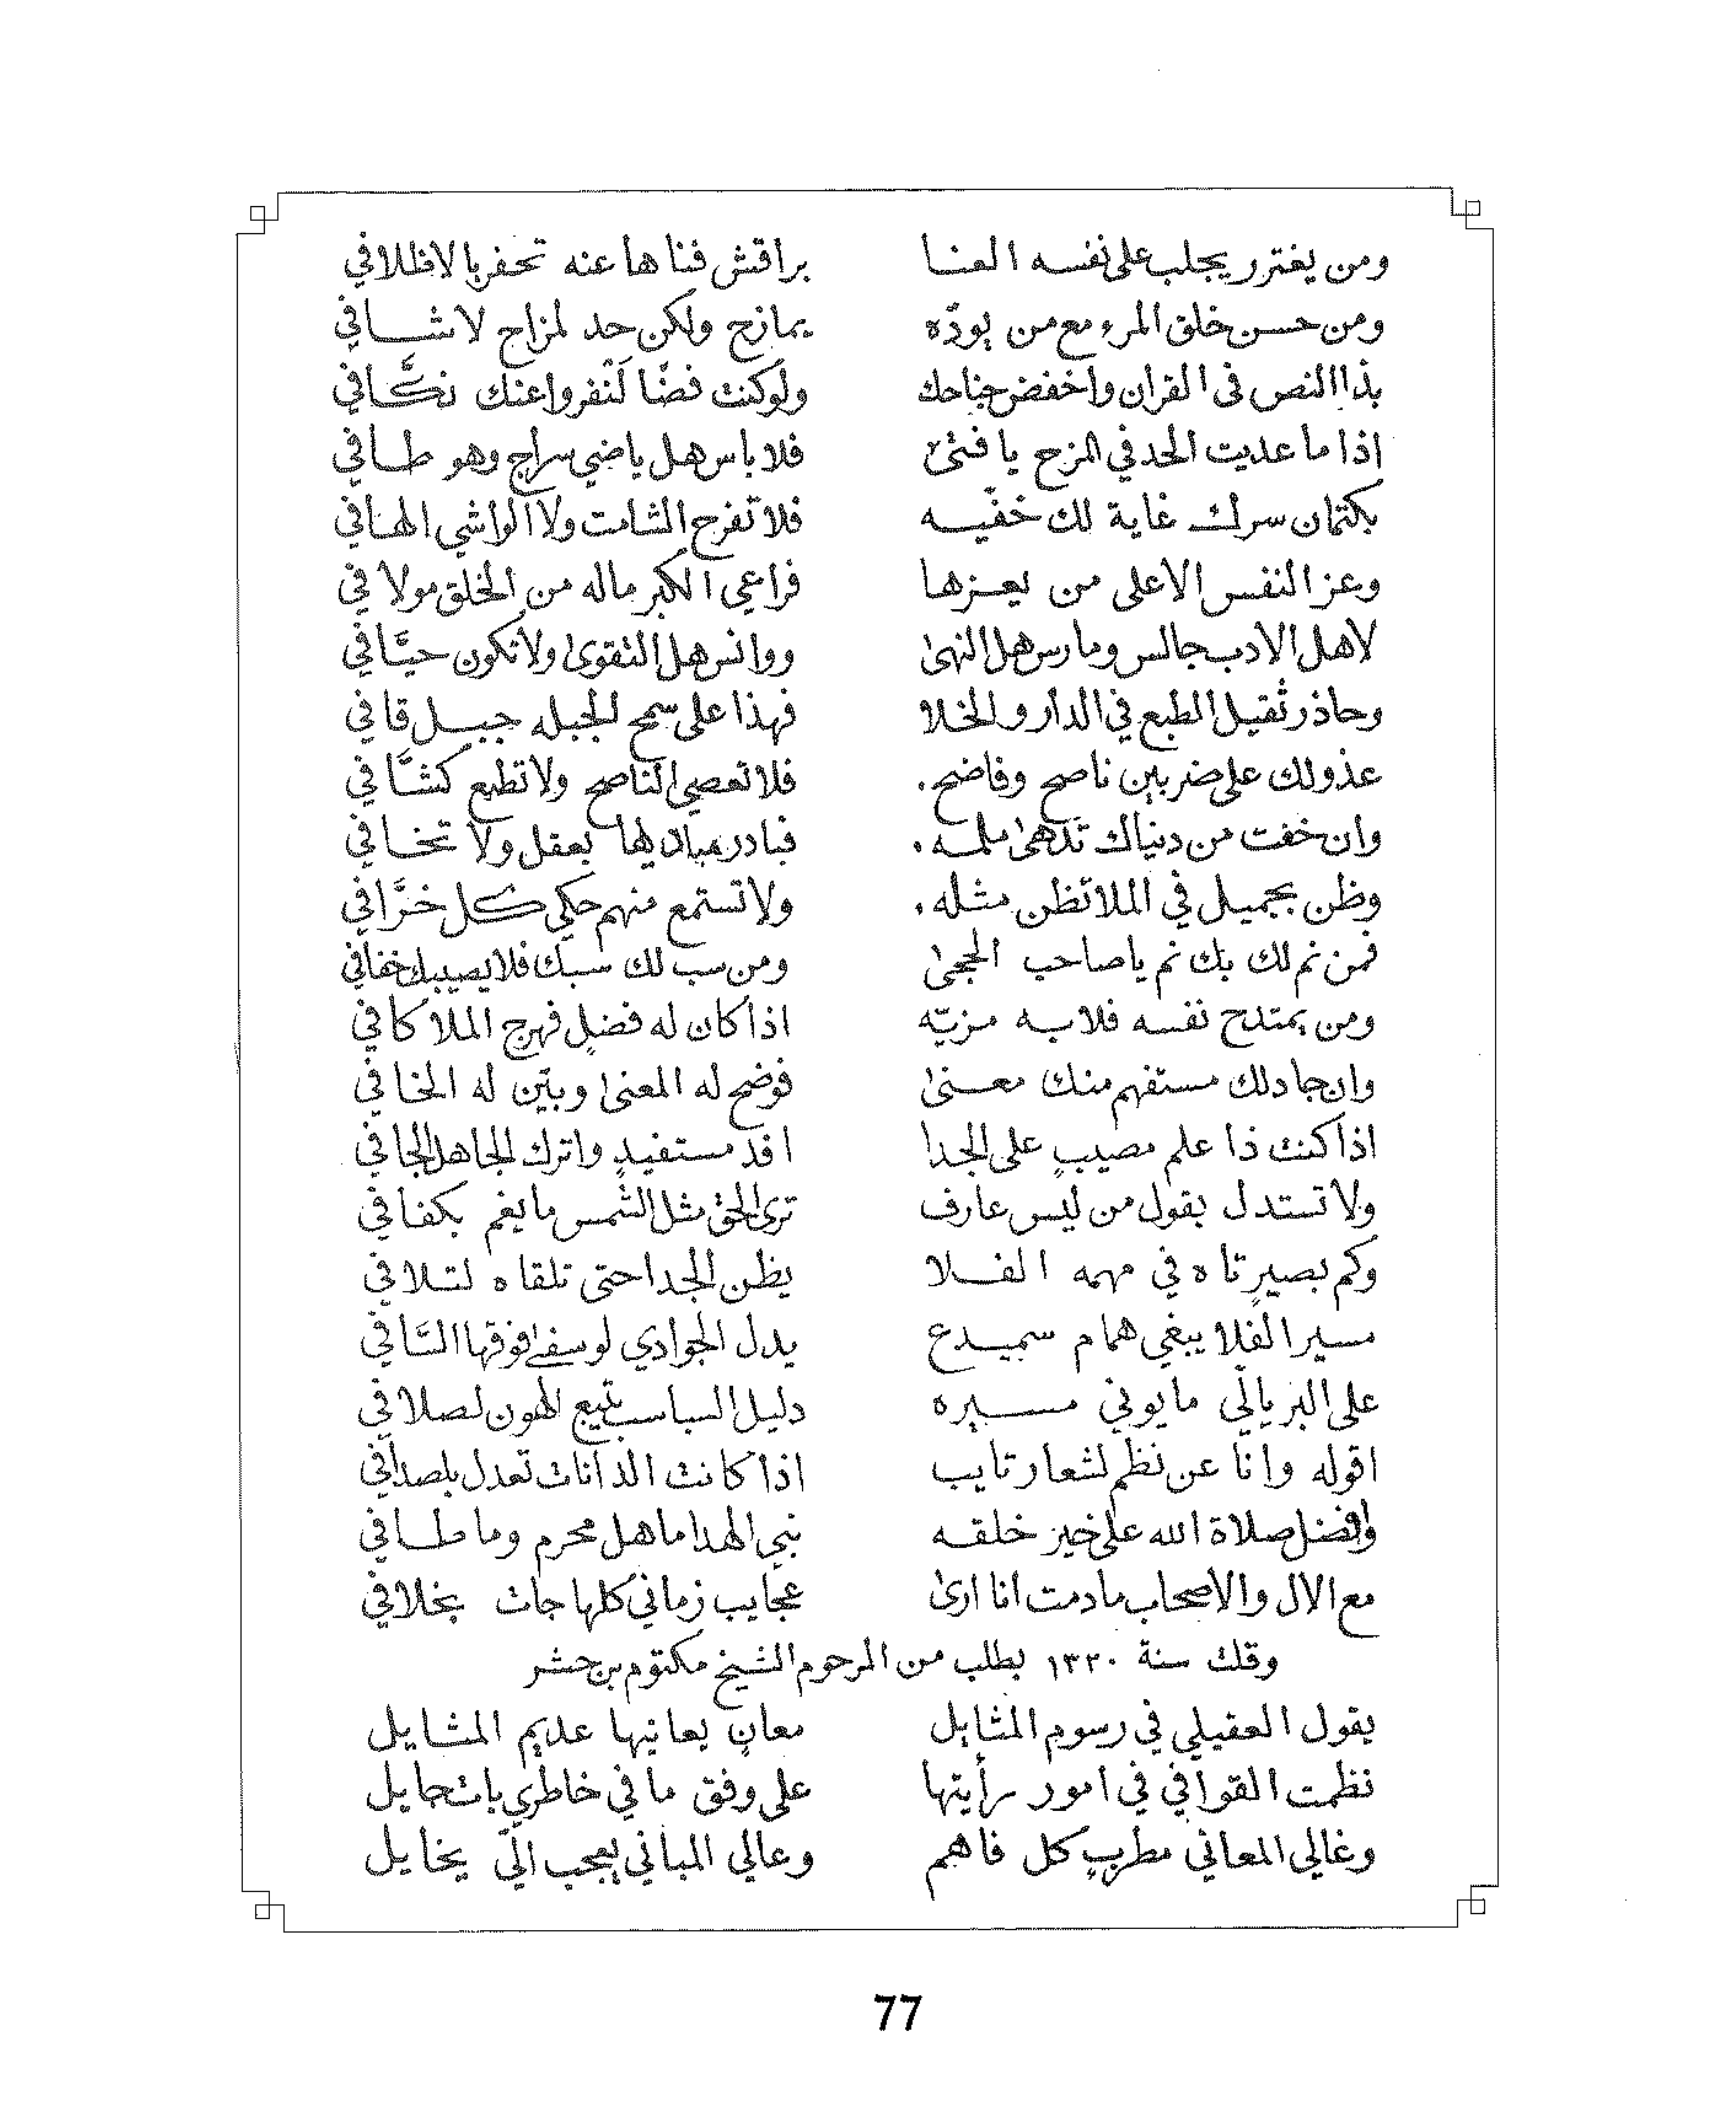 ومن يغترر يجلب على نفسه العنا براقش فناها عنه تحفر بالاظلافي
ومن حسن خلق المرء مع من يودّه يمازح ولكن حد لمزاح لاشافي
بذا النص في القران واخفض جناحك ولوكنت فضًا لَنْفروا عنك نكَّافي
اذا ما عديت الحد في المزح يا فتىٰ فلا باس هل ياضي سراج وهو طافي
بكتمان سرك غاية لك خفّيه فلا تفرح الشامت ولا الواشي الهافي
وعز النفس الاعلى من يعزها فراعي الكبر ماله من الخلق مولافي
لاهل الادب جالس ومارس هل النهىٰ ووانس هل التقوىٰ ولا تكون حيَّافي
وحاذر ثقيل الطبع في الدار والخلا فهذا على سمح الجبله جبل قافي
عذولك على ضربين ناصح وفاضح . فلا تعصي الناصح ولا تطيع كشَّافي
وان خفت من دنياك تدهىٰ ملمه . فبادر لها بعقل ولا تخافي
وظن بجميل في الملا تظن مثله . ولا تستمع منهم حكي كل خرَّافي
فمن نم لك بك نم يا صاحب الحجىٰ ومن سب لك سبك فلا يصيبك خفافي
ومن يمتدح نفسه فلا به مزيّه اذا كان له فضلٍ فهرج الملا كافي
وان جادلك مستفهم منك معنىٰ فوضح له المعنىٰ وبيّن له الخافي
اذا كنت ذا علم مصيبٍ على الجدا افد مستفيدٍ واترك الجاهل الجافي
ولا تستدل بقول من ليس عارف ترى الحق مثل الشمس ما يغم بكفافي
وكم بصيرٍ تاه في مهمه الفلا يظن الجدا حتى تلقاه لتلافي
مسير الفلا يبغي همام سميدع يدل الجوادي لو سفىٰ فوقها السَّافي
على البر يالّي ما يوني مسيره دليل السباسب يتيع الهون لصلافي
اقوله وانا عن نظم لشعار تايب اذا كانت الدانات تعدل بلصدافي
وافضل صلاة الله على خير خلقه نبي الهدا ماهل محرم وما طافي
مع الال والاصحاب مادمت انا ارىٰ عجايب زماني كلها جات بخلافي
وقلت سنة ١٣٢٠ بطلب من المرحوم الشيخ مكتوم بن حشر
يقول العقيلي في رسوم المثايل معانٍ يعانيها عديم المشايل
نظمت القوافي في امور رأيتها على وفق ما في خاطري باتحايل
وغالي المعاني مطربٍ كل فاهم وعالي المباني يعجب الّي يخايل
77